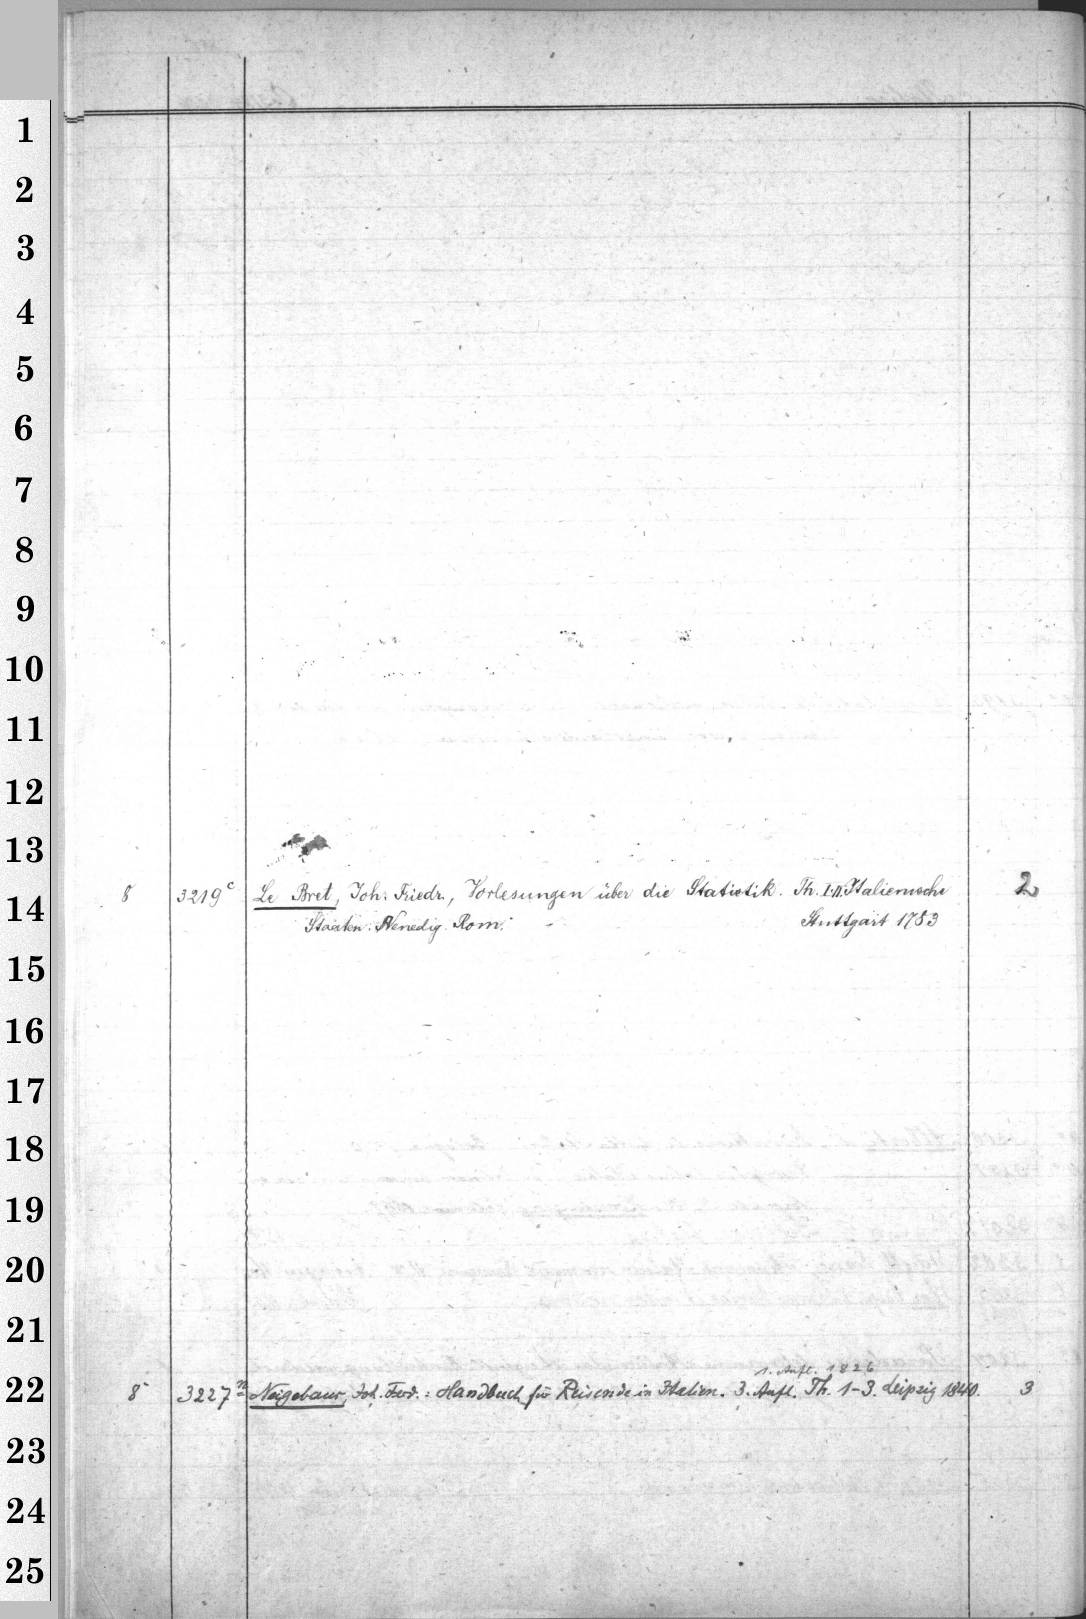 1
2
3
4
5
6
7
8
9
10
11
12
13
8 3219c Le Bret, Joh. Friedr., Vorlesungen über die Statistik. Th. I.II. Italienische 2
14
Staaten. Venedig. Rom. Stuttgart 1783
15
16
17
18
19
20
21
1. Aufl. 1826
22 8 3227m Neigebaur, Joh. Ferd.: Handbuch für Reisende in Italien. 3. Aufl. Th. 1-3. Leipzig 1840. 3
23
24
25